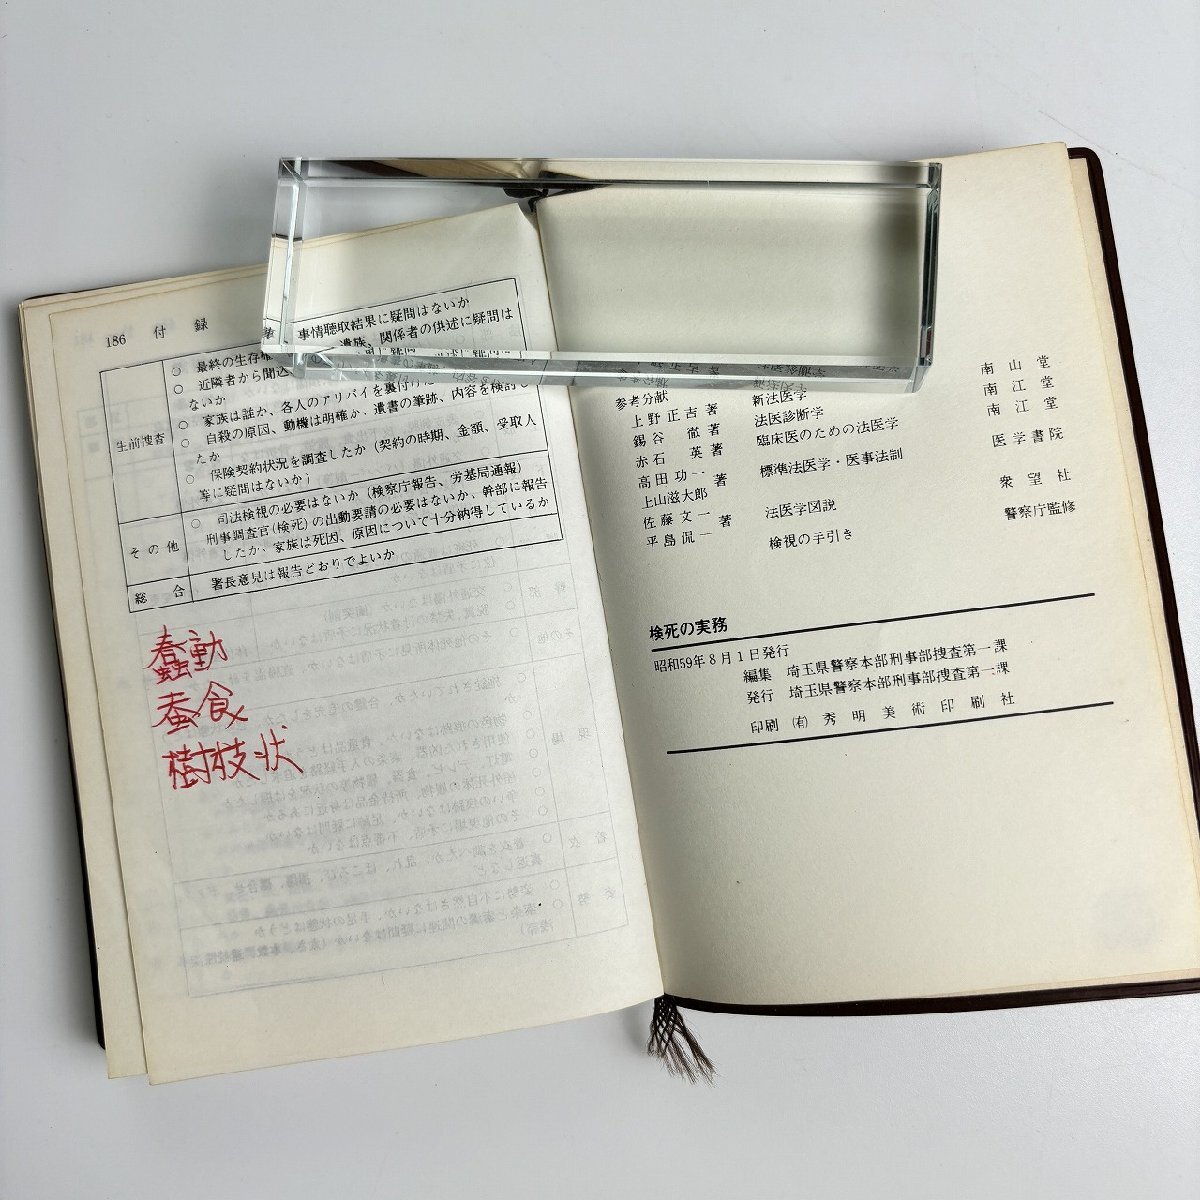 186 付録
事情聴取結果に疑問はないか
遺族、関係者の供述に疑問は
○ 最終の生存確
○ 近隣者から聞込
ないか
○ 家族は誰か、各人のアリバイを裏付けた
○ 自殺の原因、動機は明確か、遺書の筆跡、内容を検討し
たか
○ 保険契約状況を調査したか(契約の時期、金額、受取人
等に疑問はないか)
生前捜査
○ 司法検視の必要はないか(検察庁報告、労基局通報)
刑事調査官(検死)の出動要請の必要はないか、幹部に報告
したか、家族は死因、原因について十分納得しているか
その他
総合
署長意見は報告どおりでよいか
蠢動
蚕食
樹枝状
参考文献
上野正吉著 新法医学 南山堂
錫谷徹著 法医診断学 南江堂
赤石英著 臨床医のための法医学 南江堂
高田功一
上山滋太郎 著 標準法医学・医事法制 医学書院
佐藤文一
平島侃一 著 法医学図説 衆望社
検視の手引き 警察庁監修
検死の実務
昭和59年8月1日発行
編集 埼玉県警察本部刑事部捜査第一課
発行 埼玉県警察本部刑事部捜査第一課
印刷 (有) 秀明美術印刷社